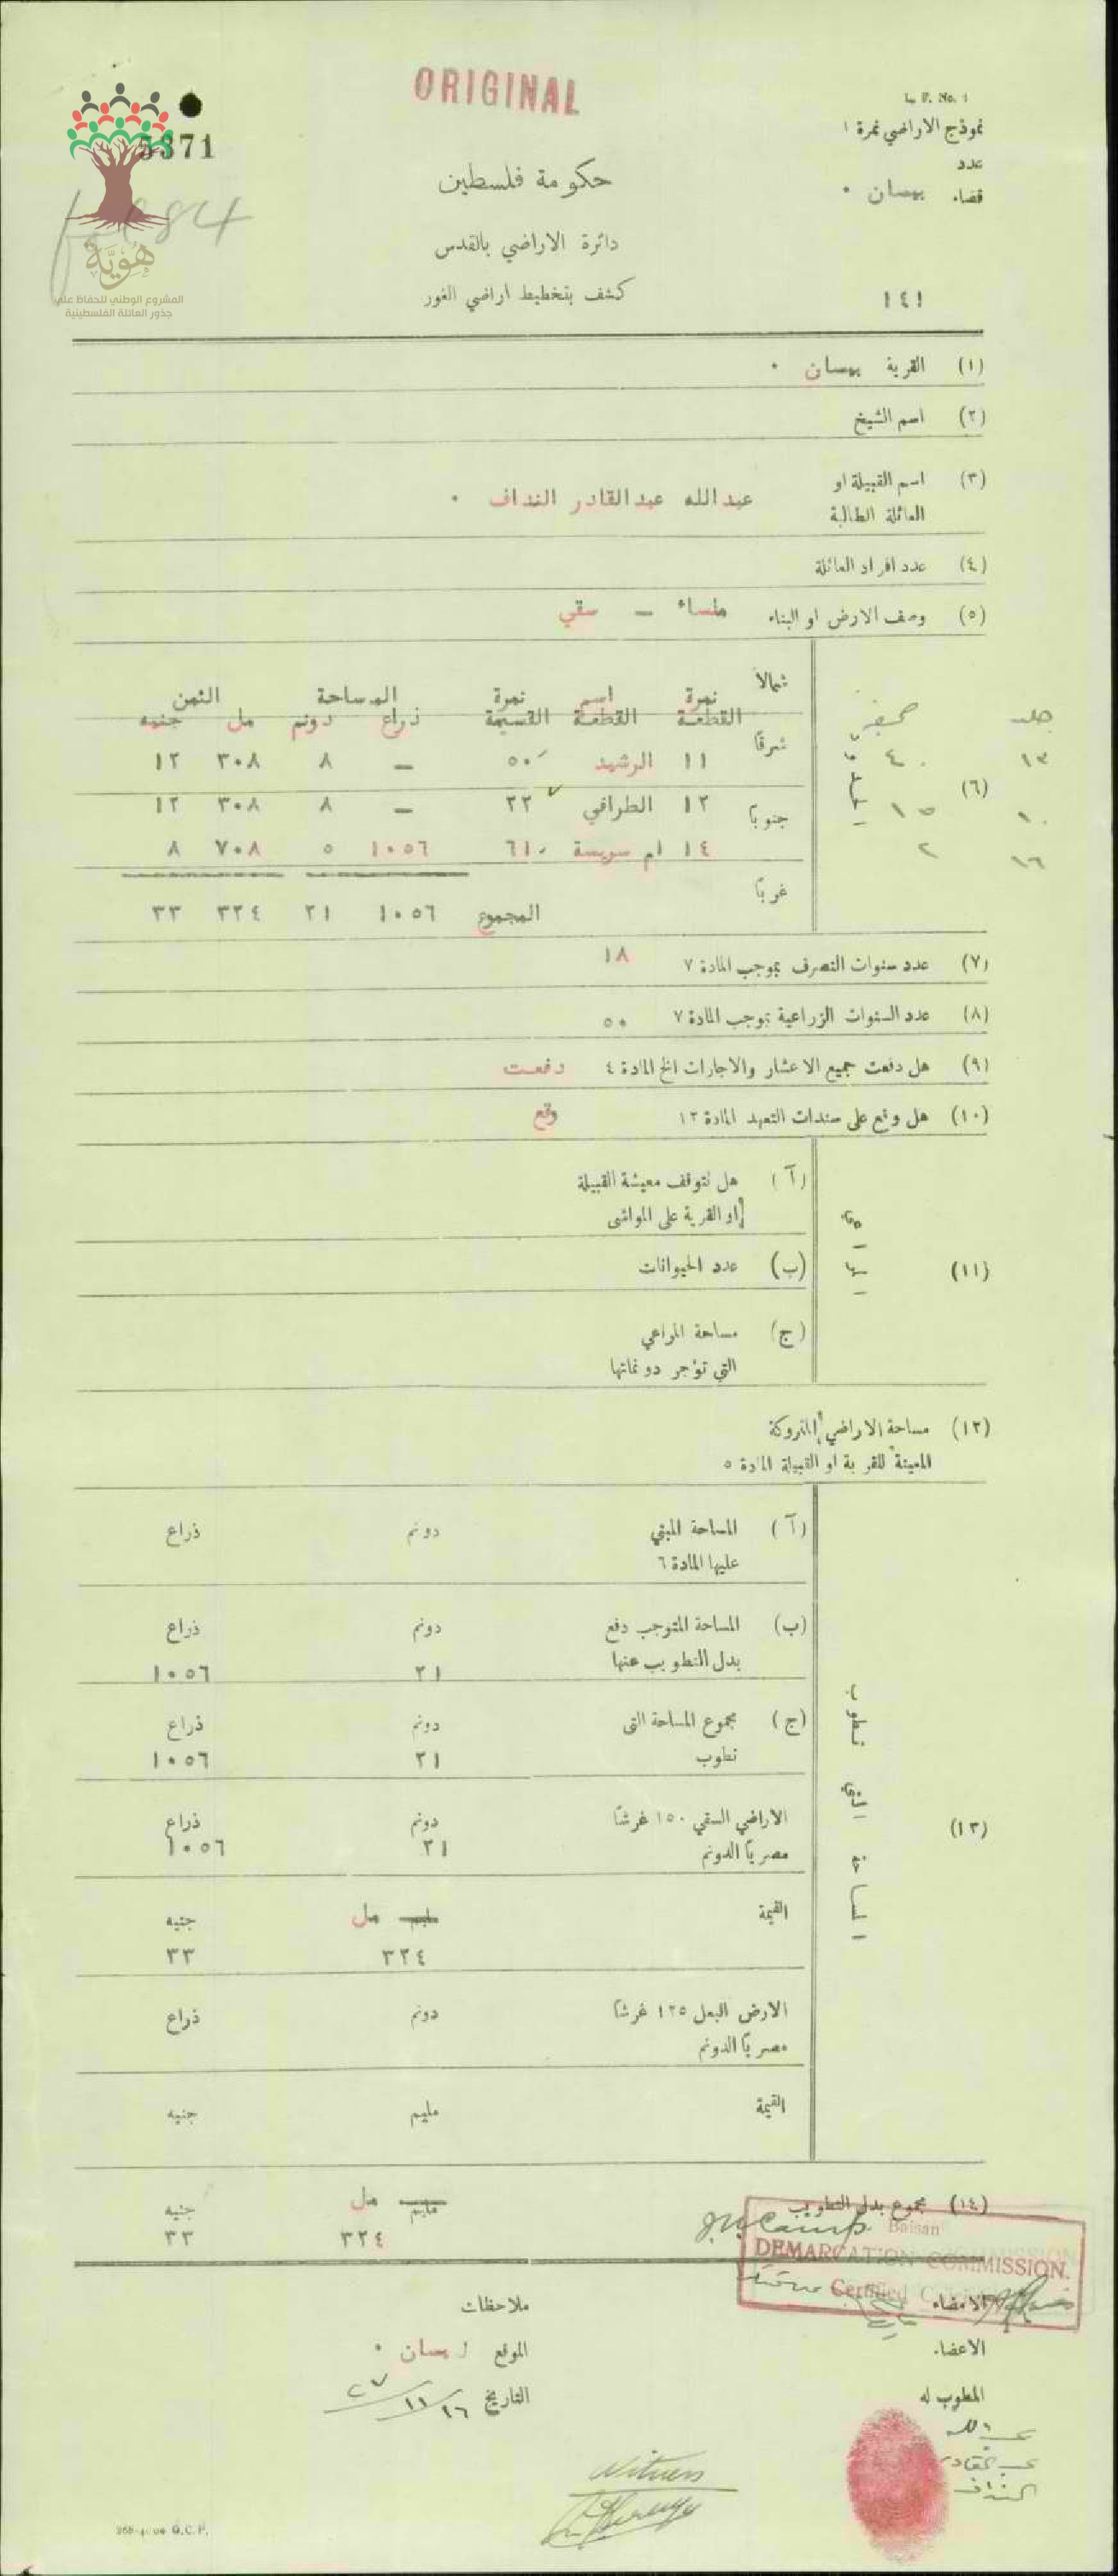 ORIGINAL
L. F. No. 1
نموذج الاراضي نمرة ١
عدد
قضاء بيسان ٠
5371
حكومة فلسطين
دائرة الاراضي بالقدس
كشف بتخطيط اراضي الغور
١٤١
هُويَّة
المشروع الوطني للحفاظ على
جذور العائلة الفلسطينية
(١) القرية بيسان ٠
(٢) اسم الشيخ
(٣) اسم القبيلة او
العائلة الطالبة
عبدالله عبدالقادر النداف ٠
(٤) عدد افراد العائلة
(٥) وصف الارض او البناء ملساء — سقي
جلد صحيفة
١٣ ٤٠
١٠ ١٥
١٦ ٢
(٦) الحدود
شمالاً
شرقاً
جنوباً
غرباً
نمرة القطعة اسم القطعة نمرة القسيمة المساحة ذراع دونم الثمن مل جنيه
١١ الرشيد ٥٠ — ٨ ٣٠٨ ١٢
١٢ الطرافي ٢٢ — ٨ ٣٠٨ ١٢
١٤ ام سريسة ٦١ ١٠٥٦ ٥ ٧٠٨ ٨
المجموع ١٠٥٦ ٢١ ٣٢٤ ٣٣
(٧) عدد سنوات التصرف بموجب المادة ٧ ١٨
(٨) عدد السنوات الزراعية بموجب المادة ٧ ٥٠
(٩) هل دفعت جميع الاعشار والاجارات الخ المادة ٤ دفعت
(١٠) هل وقع على سندات التعهد المادة ١٢ وقع
(١١) المراعي
(آ) هل تتوقف معيشة القبيلة
او القرية على المواشي
(ب) عدد الحيوانات
(ج) مساحة المراعي
التي تؤجر دونماتها
(١٢) مساحة الاراضي المتروكة
المعينة للقرية او القبيلة المادة ٥
(١٣) المساحة التي تطوب
(آ) المساحة المبني دونم ذراع
عليها المادة ٦
(ب) المساحة المتوجب دفع دونم ذراع
بدل التطويب عنها ٢١ ١٠٥٦
(ج) مجموع المساحة التي دونم ذراع
تطوب ٢١ ١٠٥٦
الاراضي السقي ١٥٠ غرشاً دونم ذراع
مصرياً الدونم ٢١ ١٠٥٦
القيمة مليم مل جنيه
٣٢٤ ٣٣
الارض البعل ١٢٥ غرشاً دونم ذراع
مصرياً الدونم
القيمة مليم جنيه
(١٤) مجموع بدل التطويب مليم مل جنيه
٣٢٤ ٣٣
Baisan
DEMARCATION COMMISSION.
Certified
الامضاء
ملاحظات
الاعضاء
الموقع بيسان ٠
المطوب له
التاريخ ١٦/١١/٢٧
عبدالله
عبدالقادر
النداف
Witness
G.C.P.